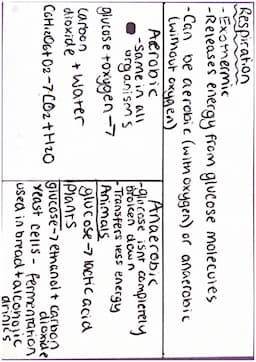 Respiration
- Exothermic
- Releases energy from glucose molecules
- Can be aerobic (with oxygen) or anaerobic
(without oxygen)
Aerobic
- Same in all
organisms
glucose + oxygen →
carbon + water
dioxide
C6H12O6 + O2 → CO2 + H2O
Anaerobic
- glucose isnt completely
broken down
- Transfers less energy
Animals
glucose → lactic acid
Plants
glucose → ethanol + carbon
dioxide
Yeast cells - fermentation
used in bread + alcoholic
drinks